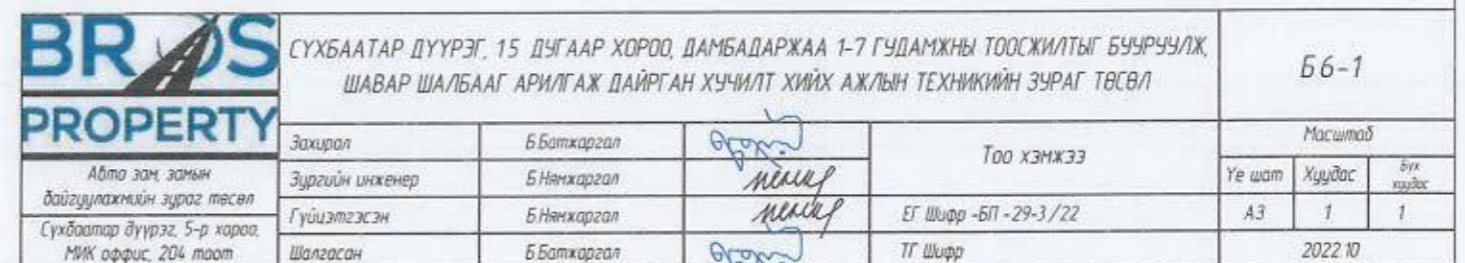 BROS
PROPERTY
Авто зам, замын
байгууламжийн зураг төсөл
Сүхбаатар дүүрэг, 5-р хороо,
МИК оффис, 204 тоот
СҮХБААТАР ДҮҮРЭГ, 15 ДУГААР ХОРОО, ДАМБАДАРЖАА 1-7 ГУДАМЖНЫ ТООСЖИЛТЫГ БУУРУУЛЖ,
ШАВАР ШАЛБААГ АРИЛГАЖ ДАЙРГАН ХУЧИЛТ ХИЙХ АЖЛЫН ТЕХНИКИЙН ЗУРАГ ТӨСӨЛ
Б6-1
Захирал Б.Батжаргал
Зургийн инженер Б.Нямжаргал
Гүйцэтгэсэн Б.Нямжаргал
Шалгасан Б.Батжаргал
Тоо хэмжээ
ЕГ Шифр -БП -29-3/22
ТГ Шифр
Масштаб
Үе шат Хуудас Бүх хуудас
А3 1 1
2022.10